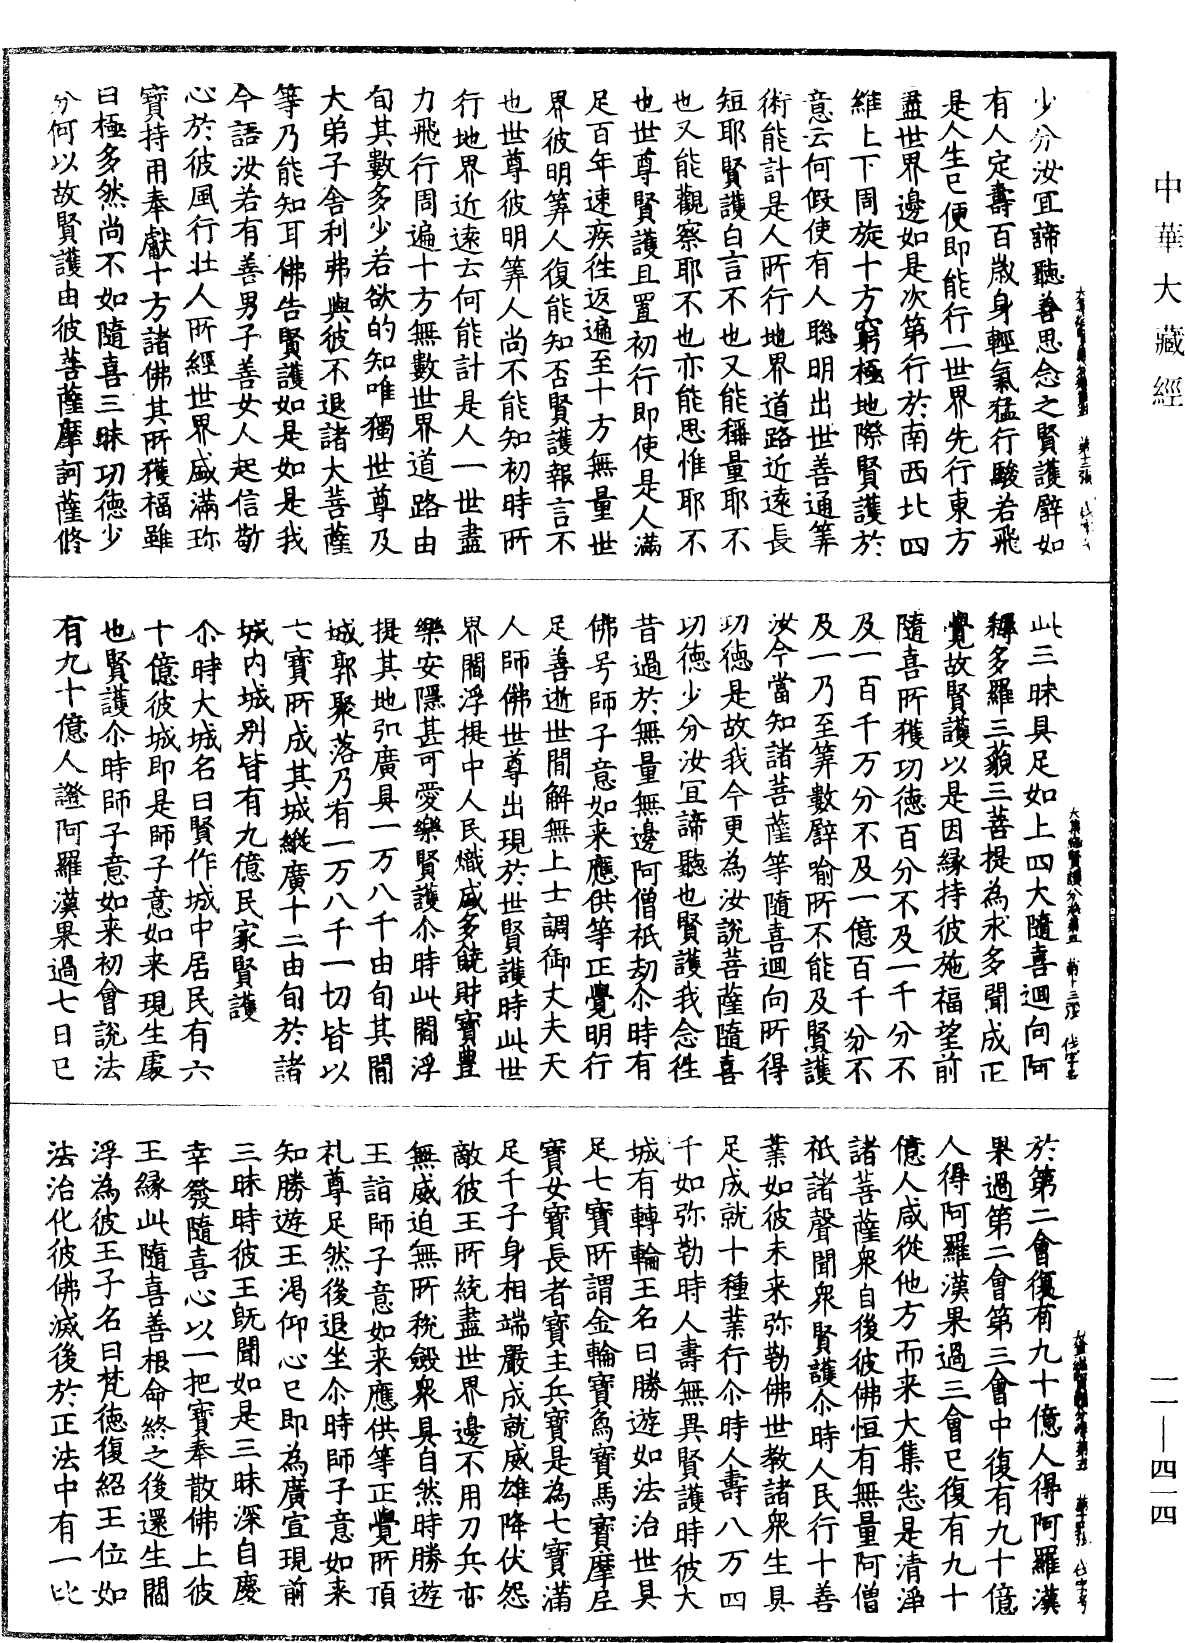 中華大藏經
少分汝宜諦聽善思念之賢護譬如
有人定壽百歲身輕氣猛行駿若飛
是人生已便即能行一世界先行東方
盡世界邊如是次第行於南西北四
維上下周旋十方窮極地際賢護於
意云何假使有人聦明出世善通筭
術能計是人所行地界道路近遠長
短耶賢護白言不也又能稱量耶不
也又能觀察耶不也亦能思惟耶不
也世尊賢護且置初行即使是人滿
足百年速疾徃返遍至十方無量世
界彼明筭人復能知否賢護報言不
也世尊彼明筭人尚不能知初時所
行地界近遠云何能計是人一世盡
力飛行周遍十方無數世界道路由
旬其數多少若欲的知唯獨世尊及
大弟子舍利弗與彼不退諸大菩薩
等乃能知耳佛告賢護如是如是我
今語汝若有善男子善女人起信敬
心於彼風行壯人所經世界盛滿珎
寶持用奉獻十方諸佛其所獲福雖
曰極多然尚不如隨喜三昧功德少
分何以故賢護由彼菩薩摩訶薩修
大集經賢護分卷第五 第十三張
此三昧具足如上四大隨喜迴向阿
耨多羅三藐三菩提為求多聞成正
覺故賢護以是因緣持彼施福望前
隨喜所獲功德百分不及一千分不
及一百千万分不及一億百千分不
及一乃至筭數譬喻所不能及賢護
汝今當知諸菩薩等隨喜迴向所得
功德是故我今更為汝說菩薩隨喜
功德少分汝宜諦聽也賢護我念徃
昔過於無量無邊阿僧祇劫尒時有
佛号師子意如来應供等正覺明行
足善逝世間解無上士調御丈夫天
人師佛世尊出現於世賢護時此世
界閻浮提中人民熾盛多饒財寶豊
樂安隱甚可愛樂賢護尒時此閻浮
提其地弘廣具一万八千由旬其間
城郭聚落乃有一万八千一切皆以
七寶所成其城縱廣十二由旬於諸
城內城別皆有九億民家賢護
尒時大城名曰賢作城中居民有六
十億彼城即是師子意如来現生處
也賢護尒時師子意如来初會說法
有九十億人證阿羅漢果過七日已
於第二會復有九十億人得阿羅漢
果過第二會第三會中復有九十億
人得阿羅漢果過三會已復有九十
億人咸從他方而来大集悉是清淨
諸菩薩衆自後彼佛恒有無量阿僧
祇諸聲聞衆賢護尒時人民行十善
業如彼未来弥勒佛世教諸衆生具
足成就十種業行尒時人壽八万四
千如弥勒時人壽無異賢護時彼大
城有轉輪王名曰勝遊如法治世具
足七寶所謂金輪寶𤉢寶馬寶摩尼
寶女寶長者寶主兵寶是為七寶滿
足千子身相端嚴成就威雄降伏怨
敵彼王所統盡世界邊不用刀兵亦
無威迫無所稅斂衆具自然時勝遊
王詣師子意如来應供等正覺所頂
礼尊足然後退坐尒時師子意如来
知勝遊王渴仰心已即為廣宣現前
三昧時彼王既聞如是三昧深自慶
幸發隨喜心以一把寶奉散佛上彼
王緣此隨喜善根命終之後還生閻
浮為彼王子名曰梵德復紹王位如
法治化彼佛滅後於正法中有一比
一一—四一四